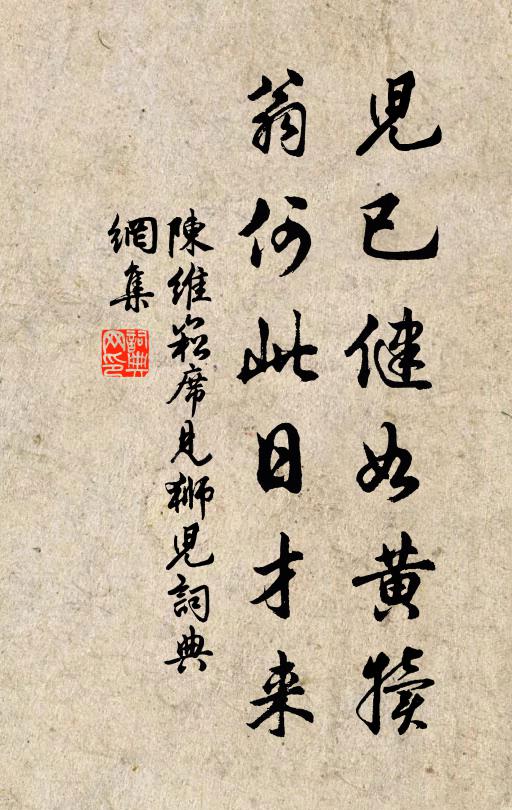 兒已健如黃犢
翁何此日才来
陳維崧席見獅兒詞典
網集
詞典
网印